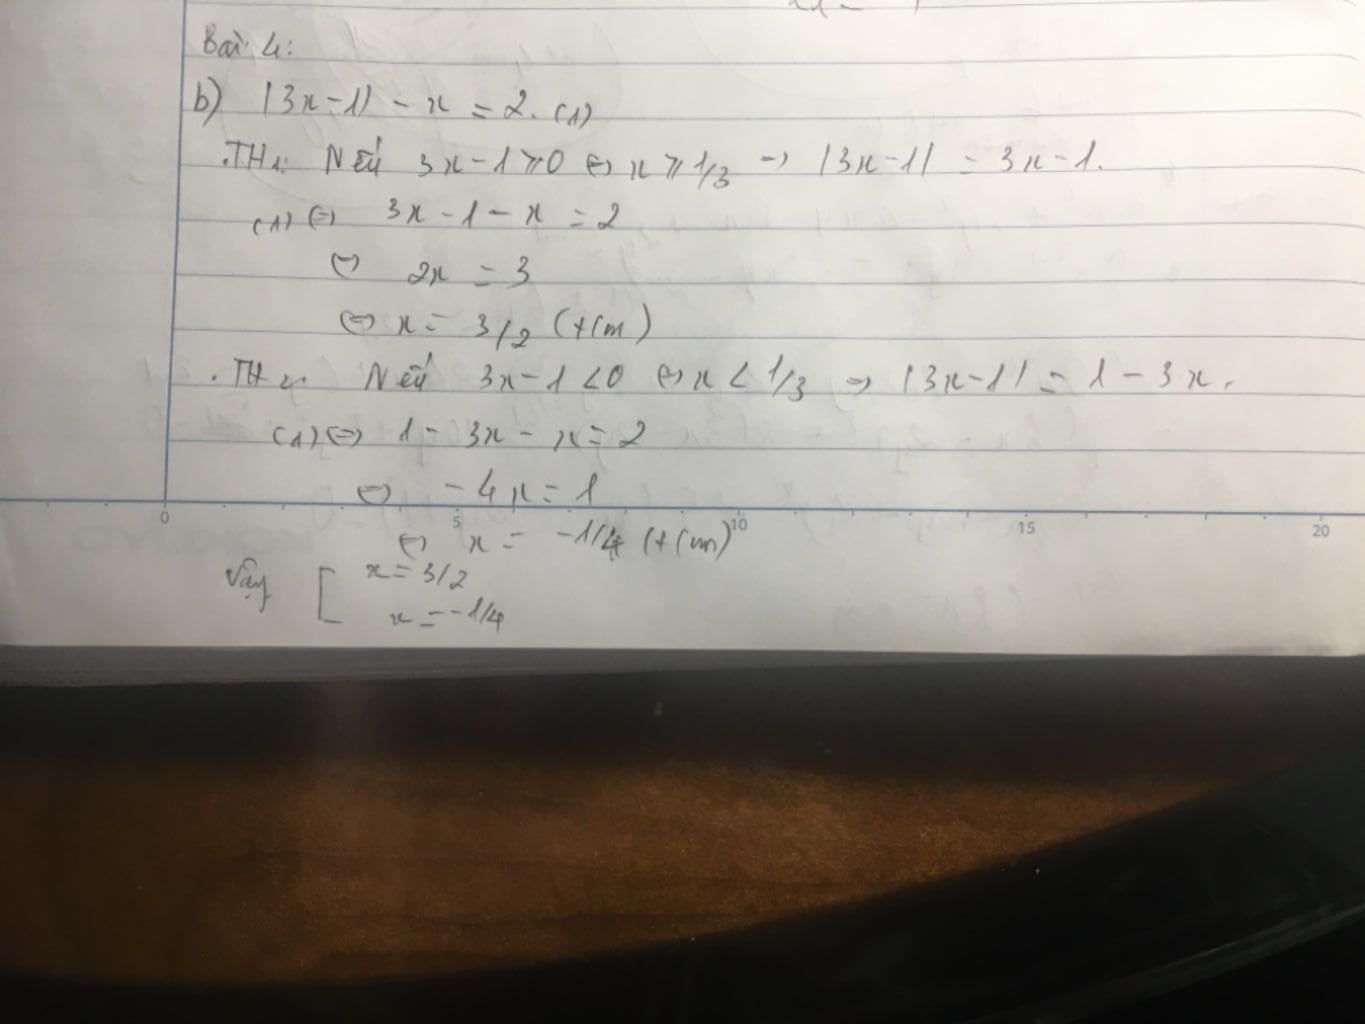 Bài 4:
b) |3x-1| - x = 2. (1)
.TH1: Nếu 3x-1 ⩾ 0 ⇔ x ⩾ 1/3 ⇒ |3x-1| = 3x-1.
(1) ⇔ 3x-1-x = 2
⇔ 2x = 3
⇔ x = 3/2 (t/m)
.TH2. Nếu 3x-1 < 0 ⇔ x < 1/3 ⇒ |3x-1| = 1-3x.
(1) ⇔ 1-3x-x = 2
⇔ -4x = 1
0 5 10 15 20
⇔ x = -1/4 (t/m)
Vậy [ x = 3/2
x = -1/4